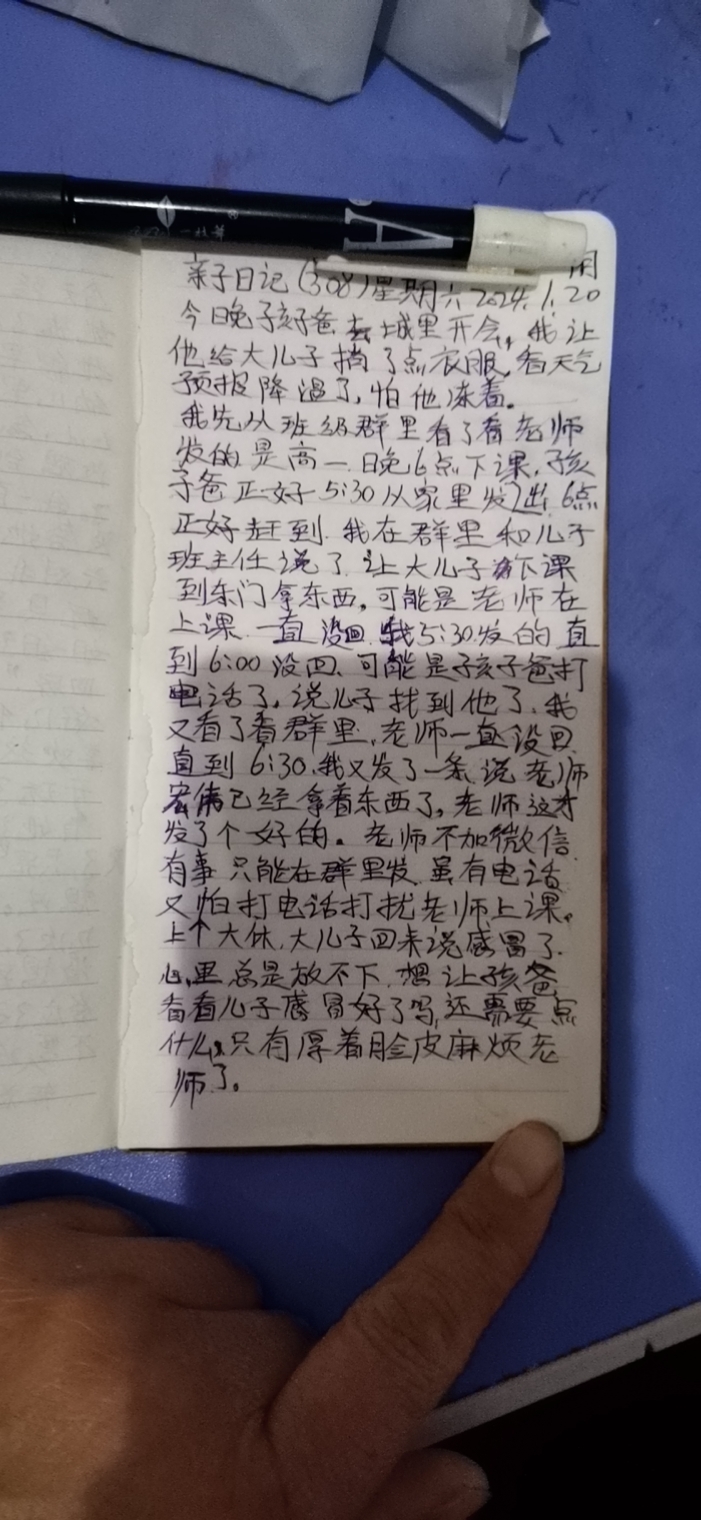 一枝笔
A
用
亲子日记(308)星期六2024.1.20
今日晚子孩子爸去城里开会,我让
他给大儿子捎了点衣服,看天气
预报降温了,怕他冻着。
我先从班级群里看了看老师
发的是高一晚6点下课,孩
子爸正好5:30从家里发出,6点
正好赶到.我在群里和儿子
班主任说了.让大儿子下课
到东门拿东西,可能是老师在
上课.一直没回.我5:30发的直
到6:00没回、可能是子孩子爸打
电话了,说儿子找到他了.我
又看了看群里,老师一直没回
直到6:30.我又发了一条说老师
宏伟已经拿着东西了,老师这才
发了个好的。老师不加微信.
有事只能在群里发.虽有电话
又怕打电话打扰老师上课。
上个大休,大儿子回来说感冒了.
心里总是放不下.想让孩爸
看看儿子感冒好了吗,还需要点
什么,只有厚着脸皮麻烦老
师了。